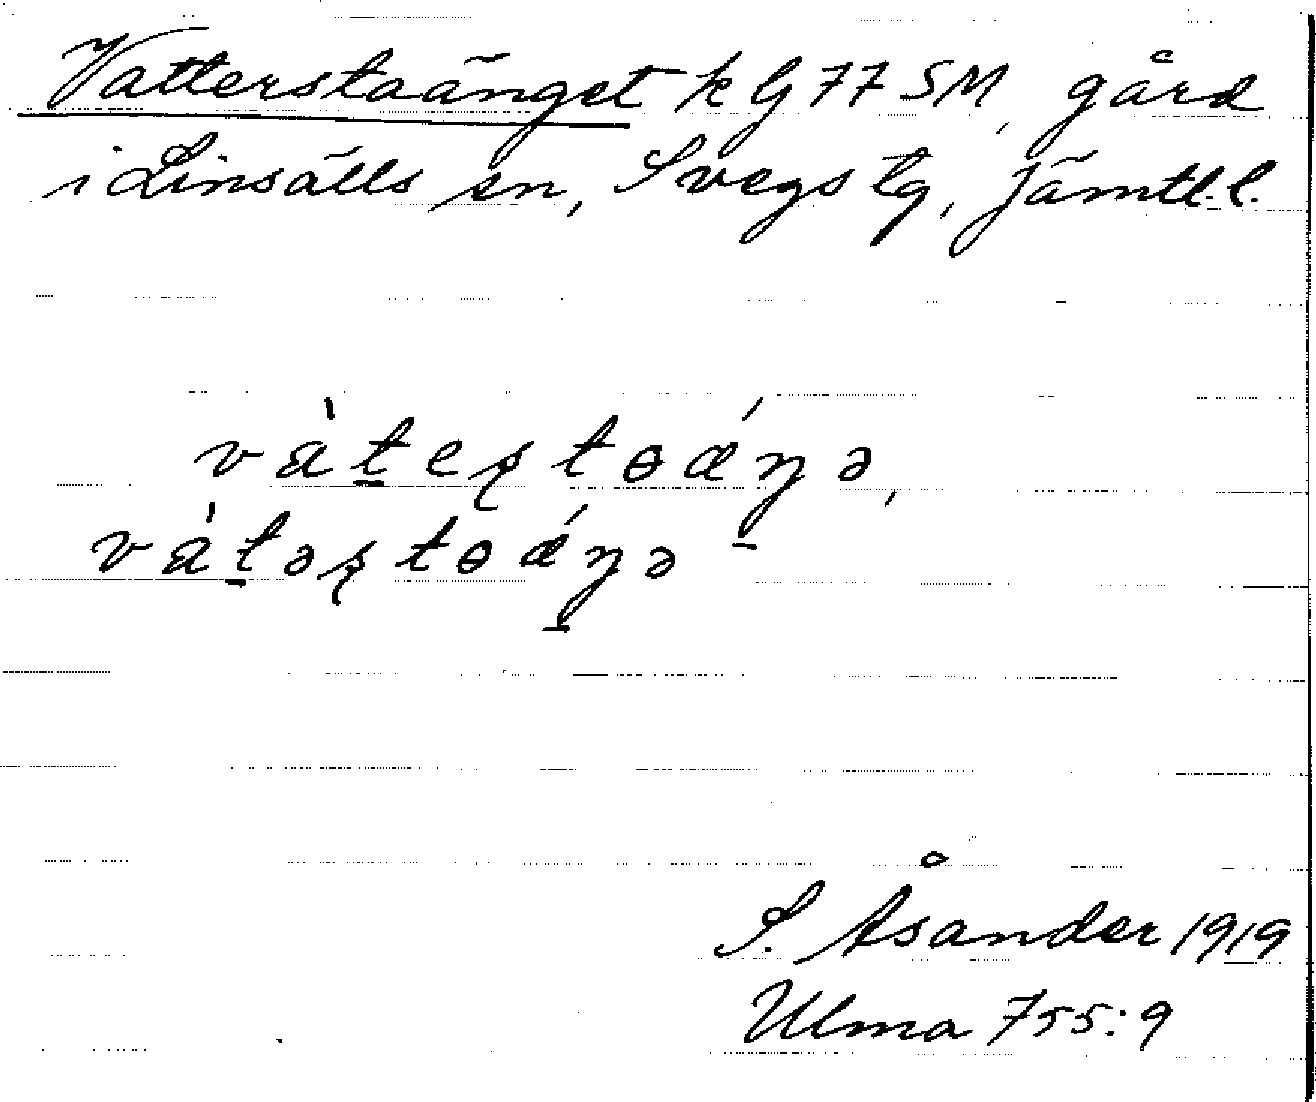 Vatterstaänget k G 77 SM, gård
i Linsälls sn, Svegs tg, Jämtl.l.
vàt̲eʂtɵǽŋ̲ə,
vàt̲əʂtɵǽŋ̲ə
S. Åsander 1919
Ulma 755:9